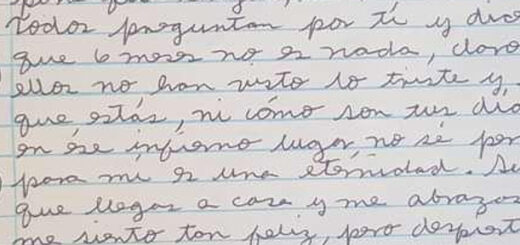 todos preguntan por tí y dice
que 6 meses no es nada, claro
ellos no han visto lo triste y
que estás, ni cómo son tus día
en ése infierno lugar no sé por
para mi es una eternidad. Su
que llegas a casa y me abrazas
me siento tan feliz, pero despiert